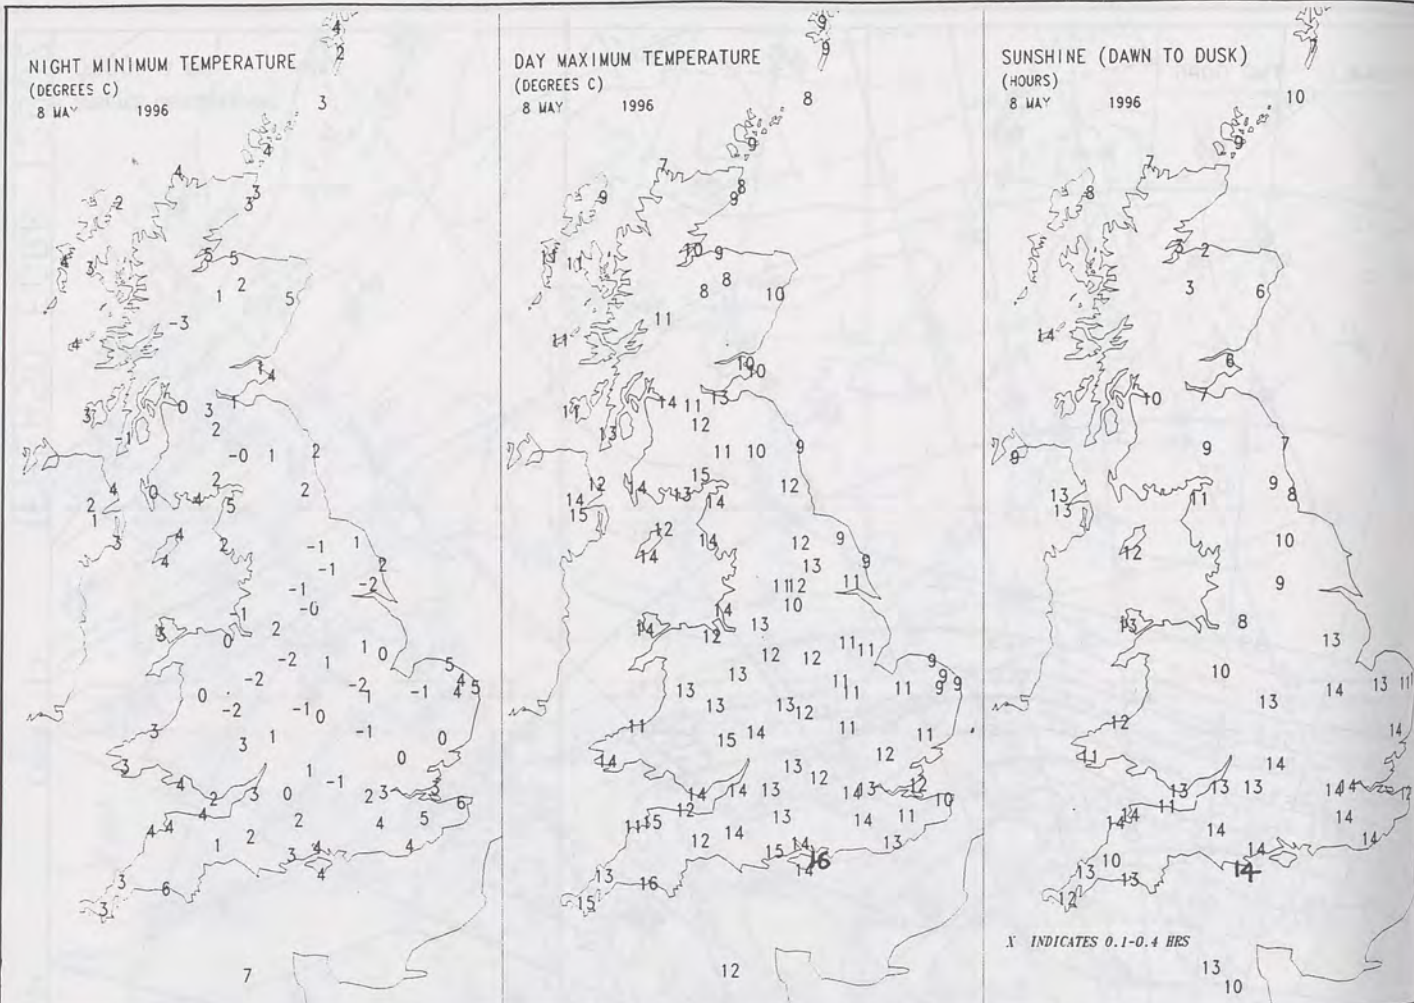 NIGHT MINIMUM TEMPERATURE
(DEGREES C)
8 MAY 1996
4
2
3
4
4
3
3
2
4
3
5 5
2
1
5
-3
4
1
4
3
0
3
1
2
-1
-0 1 2
4
2
2
0
4
2
5
1
3
4
2
4
-1
1
-1
2
-1
-2
1
-0
3
0
2
1
0
-2
1
5
-2
0
-2
1
-1
4
4
5
-2
-1
0
3
3
1
-1
0
3
0
4
2
4
3
0
1
-1
2
3
3
6
4 4
1
2
2
3
4
4
4
5
4
3
6
3
7
DAY MAXIMUM TEMPERATURE
(DEGREES C)
8 MAY 1996
9
9
8
9
7
8
9
9
11
11
10
9
8
8
10
11
11
10
10
11
14
11
13
12
13
11
10
9
15
12
14
12
14
13
14
15
12
14
14
12
9
13
9
11 12
11
10
14
14
12
13
12
12
11
11
13
13
13
11
11
11
9
9
9
9
13
12
11
14
15
14
11
12
11
13
12
14
14
13
14
13
12
12
10
11
15
12
12
14
13
14
11
13
15
14
16
14
13
16
15
12
SUNSHINE (DAWN TO DUSK)
(HOURS)
8 MAY 1996
7
10
9
7
8
3
2
3
6
14
6
10
7
9
9
7
9
8
13
13
11
12
10
9
13
8
13
10
13
14
13
11
12
11
14
14
13
13
13
11
14
14
14
14
12
14
14
14
14
10
13
13
12
14
X INDICATES 0.1-0.4 HRS
13
10